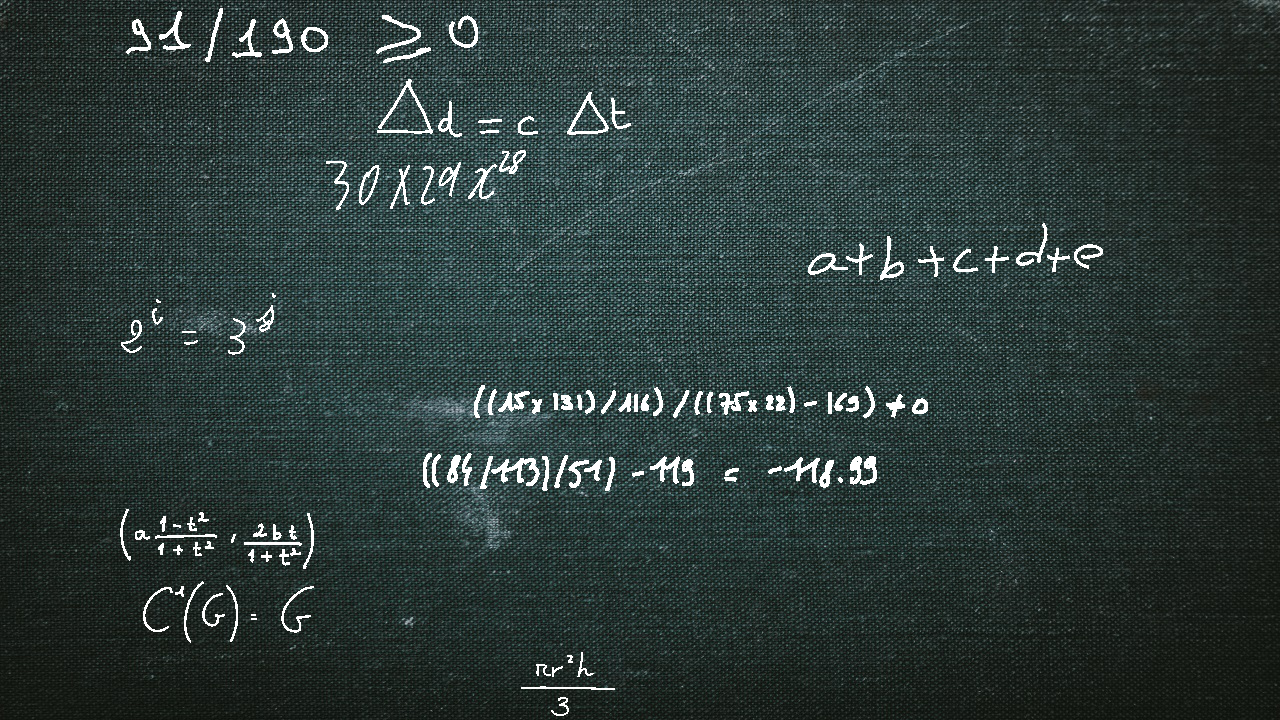 91/190 ≥ 0
Δd = c Δt
30×29x²⁸
a+b+c+d+e
2ⁱ = 3ʲ
((15×131)/116)/((75×22)-169) ≠ 0
((84/113)/51)-119 = -118.99
(a (1-t²)/(1+t²), (2bt)/(1+t²))
C¹(G) = G
πr²h/3